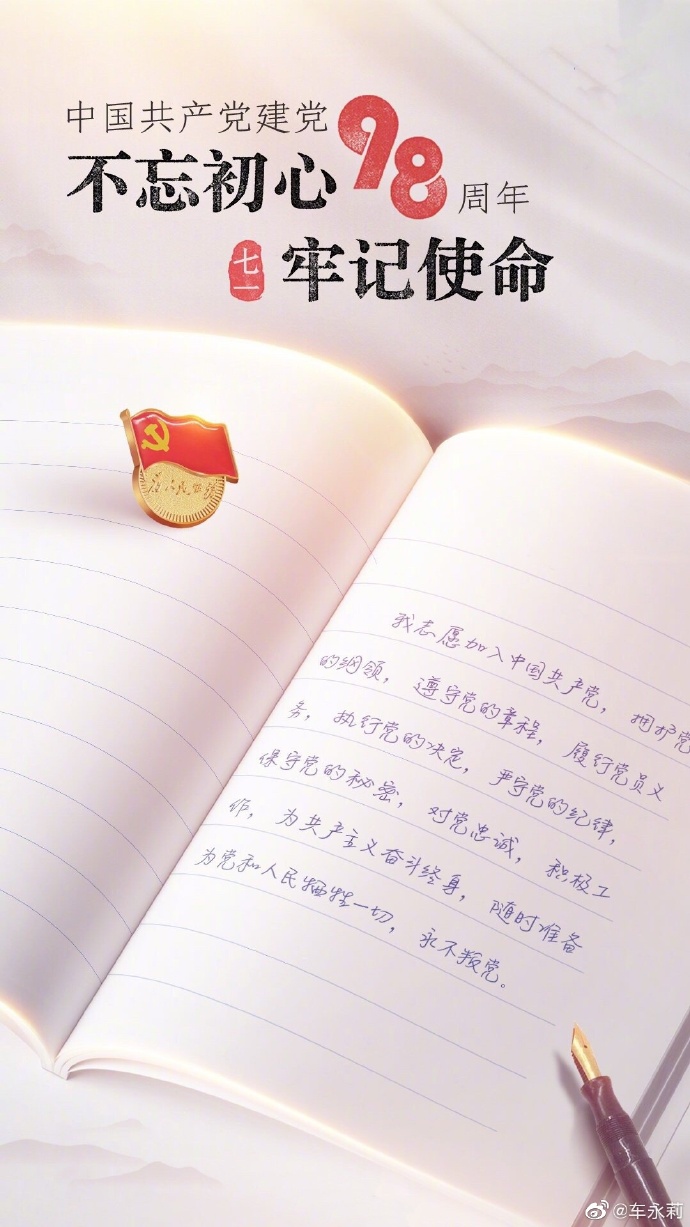 中国共产党建党98周年
不忘初心
七一
牢记使命
为人民服务
我志愿加入中国共产党，拥护党
的纲领，遵守党的章程，履行党员义
务，执行党的决定，严守党的纪律，
保守党的秘密，对党忠诚，积极工
作，为共产主义奋斗终身，随时准备
为党和人民牺牲一切，永不叛党。
@车永莉